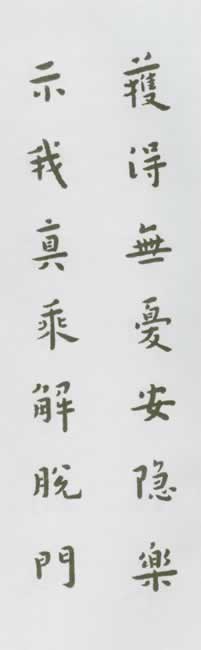 獲得無憂安隐樂
示我真乘解脫門